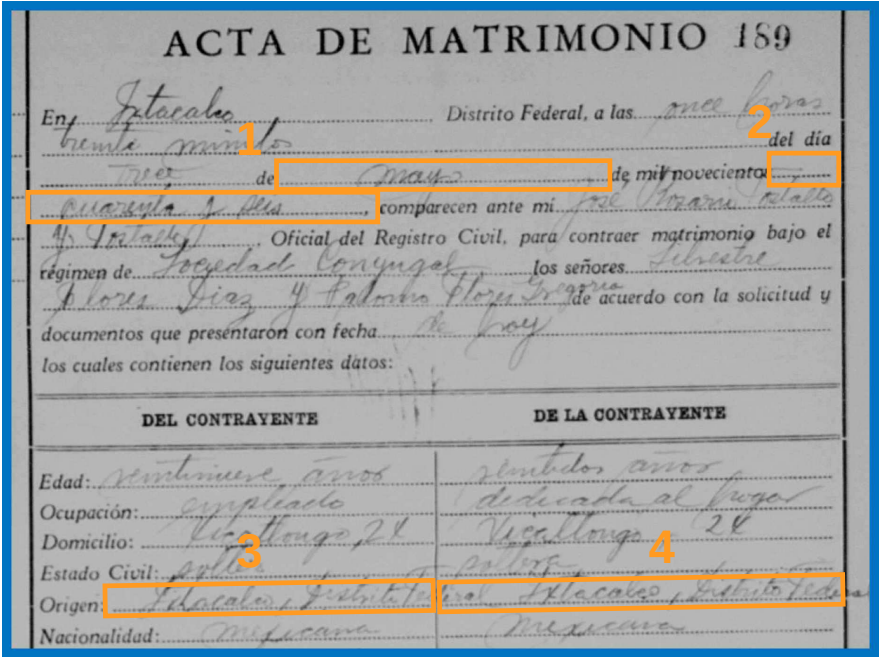 ACTA DE MATRIMONIO 189
En Ixtacalco, Distrito Federal, a las once horas
treinta minutos del día
1 2
trece de mayo de mil novecientos
cuarenta y seis, comparecen ante mí José Rosario Postalto
y Postalto, Oficial del Registro Civil, para contraer matrimonio bajo el
régimen de Sociedad Conyugal los señores Silvestre
Flores Diaz y Palomo Flores Gregoria de acuerdo con la solicitud y
documentos que presentaron con fecha de hoy
los cuales contienen los siguientes datos:
DEL CONTRAYENTE DE LA CONTRAYENTE
Edad: veintinueve años veintidos años
Ocupación: empleado dedicada al hogar
Domicilio: 24 24
3 4
Estado Civil: soltero soltera
Origen: Ixtacalco, Distrito Federal Ixtacalco, Distrito Federal
Nacionalidad: mexicana mexicana